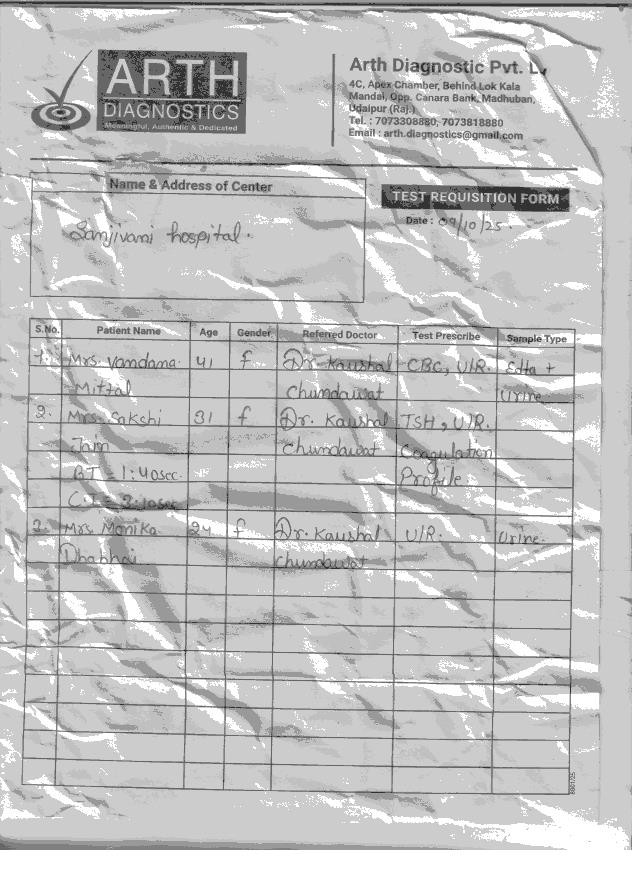 ARTH
DIAGNOSTICS
Meaningful, Authentic & Dedicated
Arth Diagnostic Pvt. L
4C, Apex Chamber, Behind Lok Kala
Mandal, Opp. Canara Bank, Madhuban,
Udaipur (Raj.)
Tel. : 7073308880, 7073818880
Email : arth.diagnostics@gmail.com
Name & Address of Center
TEST REQUISITION FORM
Date : 09/10/25.
Sanjivani hospital.
S.No. Patient Name Age Gender Referred Doctor Test Prescribe Sample Type
1. Mrs. Vandana 41 f Dr. Kaushal CBC, U/R. Edta +
Mittal Chundawat Urine
2. Mrs. Sakshi 31 f Dr. Kaushal TSH, U/R.
Jain Chundawat Coagulation
BT = 1:40sec. Profile
C.T = 3:10sec
3. Mrs. Monika 24 f Dr. Kaushal U/R. Urine.
Dhabhai Chundawat